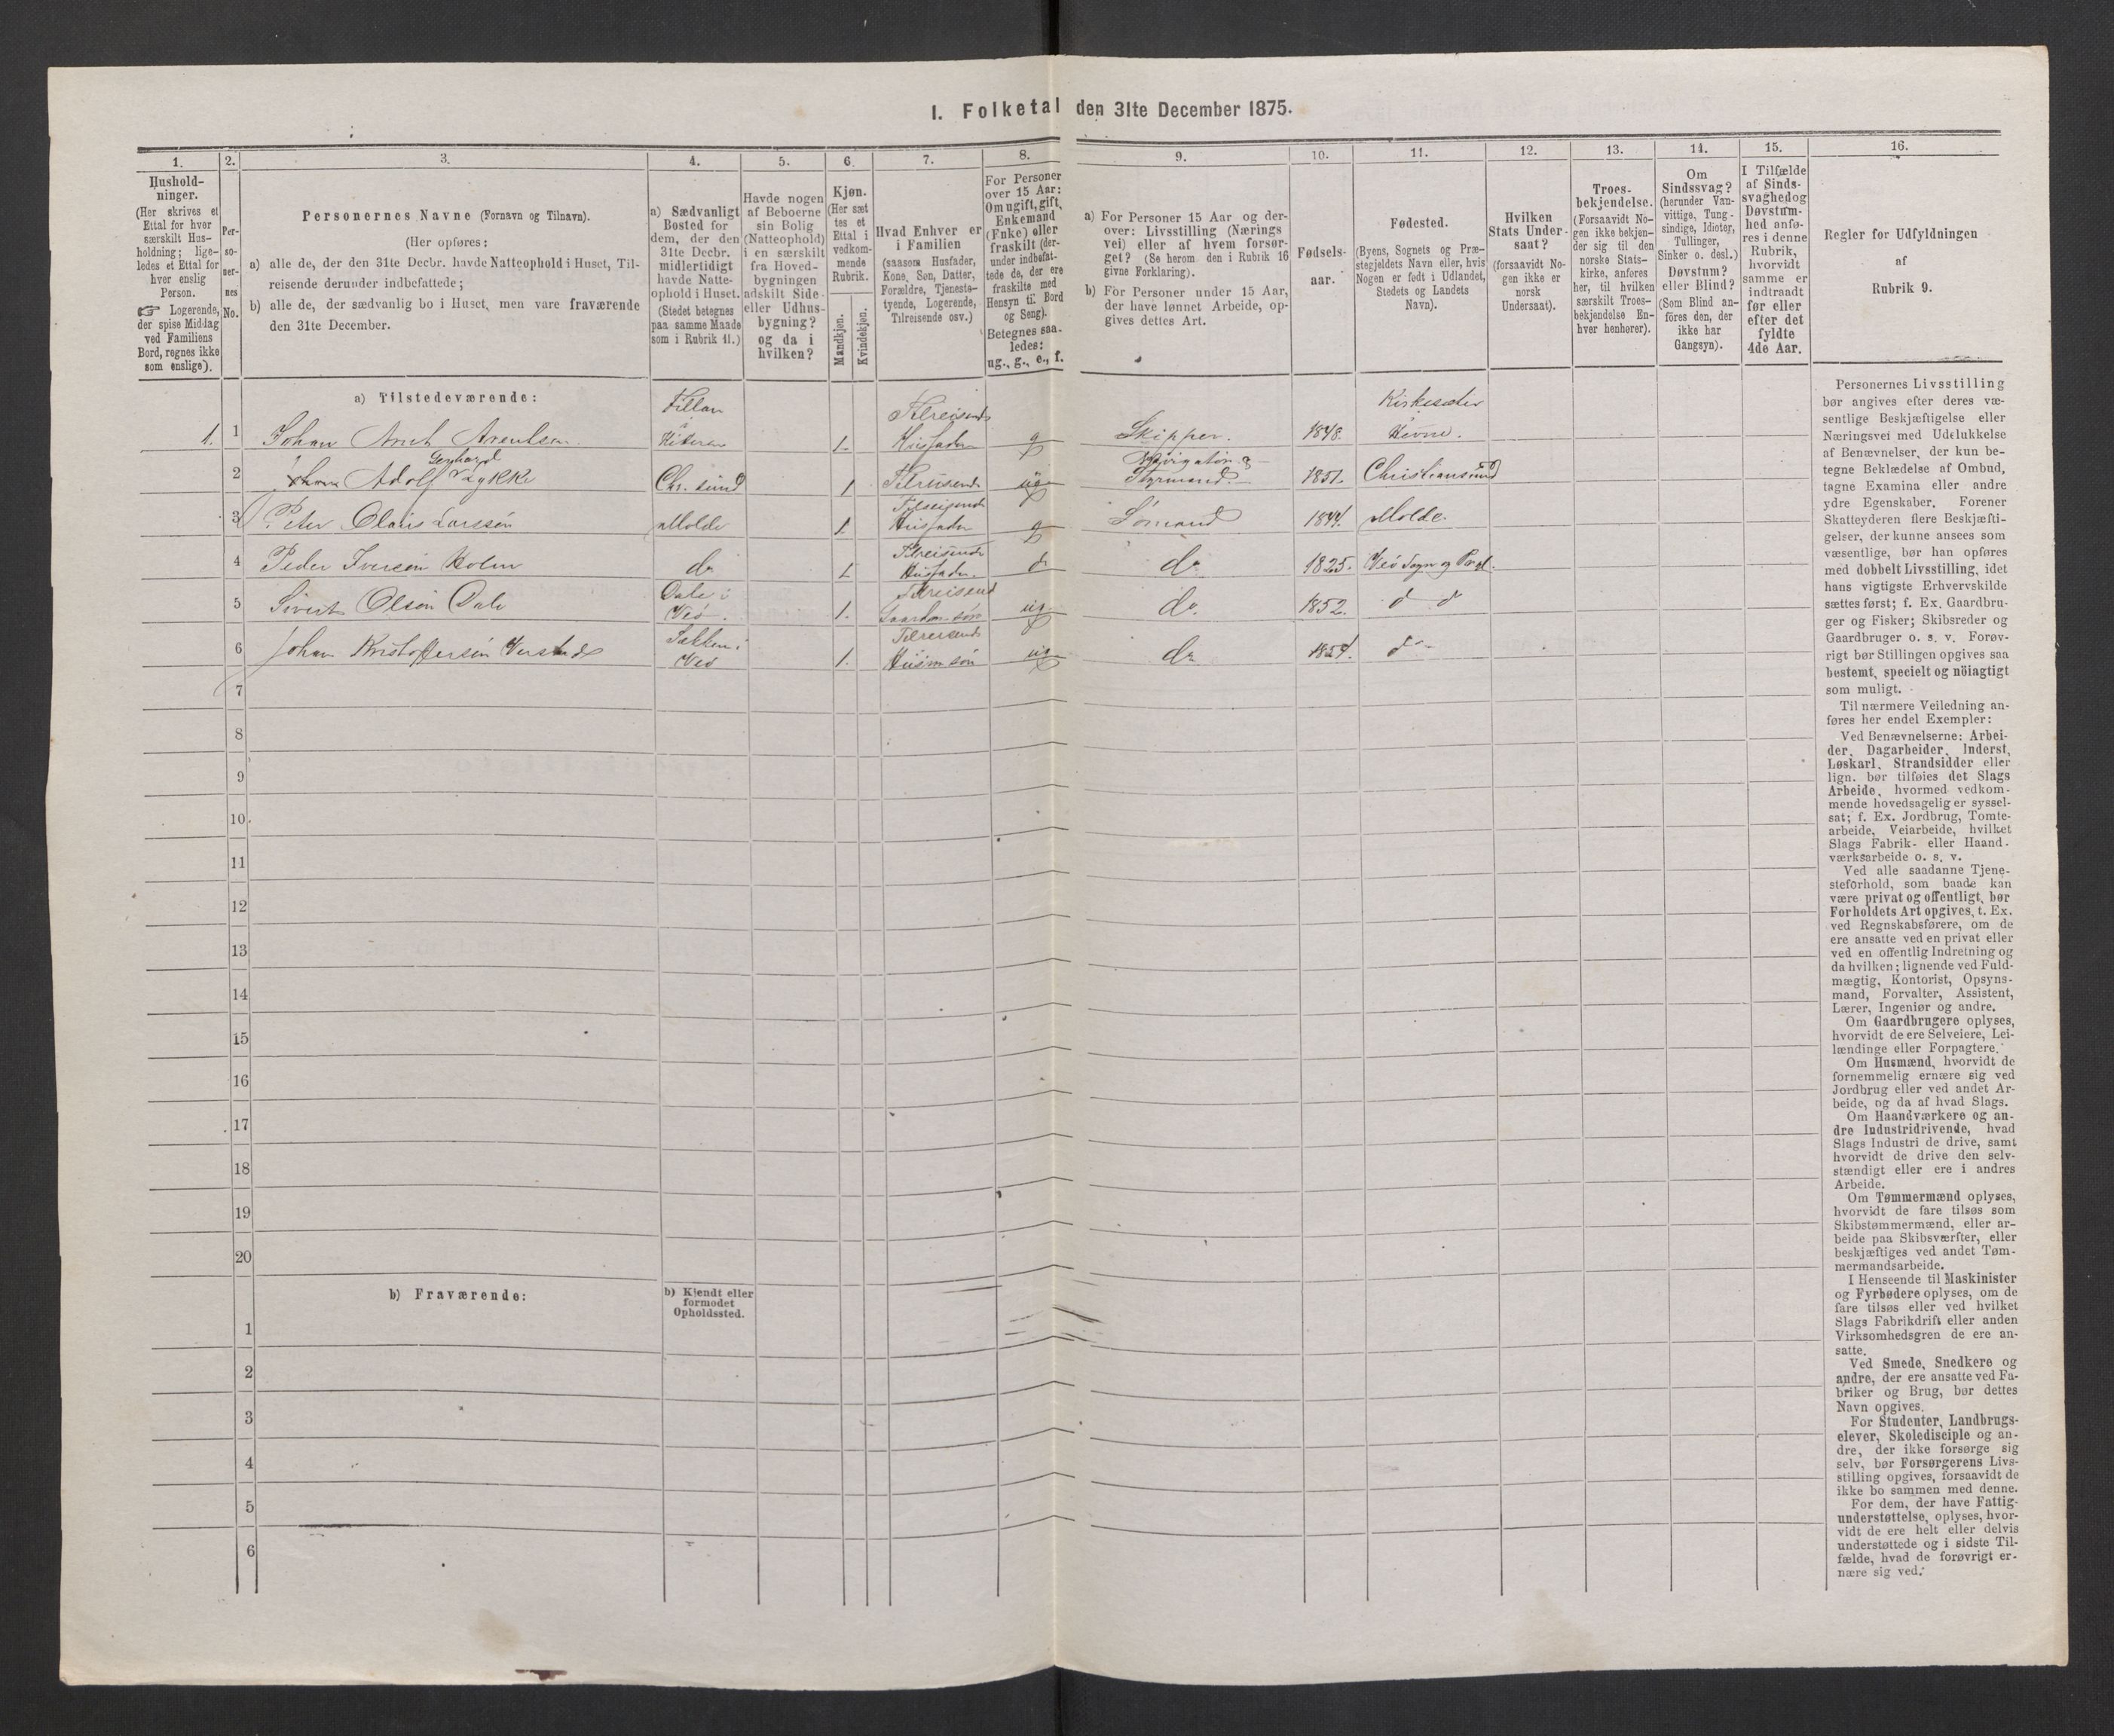 I. Folketal den 31te December 1875.
1.
2.
3.
4.
5.
6.
7.
8.
9.
10.
11.
12.
13.
14.
15.
16.
Hushold-
ninger.
(Her skrives et
Ettal for hver
særskilt Hus-
holdning; lige-
ledes et Ettal for
hver enslig
Person.
☞ Logerende,
der spise Middag
ved Familiens
Bord, regnes ikke
som enslige).
Per-
so-
ner-
nes
No.
Personernes Navne (Fornavn og Tilnavn).
(Her opføres:
a) alle de, der den 31te Decbr. havde Natteophold i Huset, Til-
reisende derunder indbefattede;
b) alle de, der sædvanlig bo i Huset, men vare fraværende
den 31te December.
a) Sædvanligt
Bosted for
dem, der den
31te Decbr.
midlertidigt
havde Natte-
ophold i Huset.
(Stedet betegnes
paa samme Maade
som i Rubrik 11.)
Havde nogen
af Beboerne
sin Bolig
(Natteophold)
i en særskilt
fra Hoved-
bygningen
adskilt Side-
eller Udhus-
bygning?
og da i
hvilken?
Kjøn.
(Her sæt
tes et
Ettal i
vedkom-
mende
Rubrik.
Mandkjøn.
Kvindekjøn.
Hvad Enhver er
i Familien
(saasom Husfader,
Kone, Søn, Datter,
Forældre, Tjeneste-
tyende, Logerende,
Tilreisende osv.)
For Personer
over 15 Aar:
Om ugift, gift,
Enkemand
(Enke) eller
fraskilt (der-
under indbefat-
tede de, der ere
fraskilte med
Hensyn til Bord
og Seng).
Betegnes saa-
ledes:
ug., g., e., f.
a) For Personer 15 Aar og der-
over: Livsstilling (Nærings
vei) eller af hvem forsør-
get? (Se herom den i Rubrik 16
givne Forklaring).
b) For Personer under 15 Aar,
der have lønnet Arbeide, op-
gives dettes Art.
Fødsels-
aar.
Fødested.
(Byens, Sognets og Præ-
stegjeldets Navn eller, hvis
Nogen er født i Udlandet,
Stedets og Landets
Navn).
Hvilken
Stats Under-
saat?
(forsaavidt No-
gen ikke er
norsk
Undersaat).
Troes-
bekjendelse.
(Forsaavidt No-
gen ikke bekjen-
der sig til den
norske Stats-
kirke, anføres
her, til hvilken
særskilt Troes-
bekjendelse En-
hver henhører).
Om
Sindssvag?
(herunder Van-
vittige, Tung-
sindige, Idioter,
Tullinger,
Sinker o. desl.)
Døvstum?
eller Blind?
(Som Blind an-
føres den, der
ikke har
Gangsyn).
I Tilfælde
af Sinds-
svaghed og
Døvstum-
hed anfø-
res i denne
Rubrik,
hvorvidt
samme er
indtraadt
før eller
efter det
fyldte
4de Aar.
Regler for Udfyldningen
af
Rubrik 9.
a) Tilstedeværende:
Fillan
Tilreisende
Kirkesæter
1. 1 Johan Arnt Arentsen Hiteren 1. Husfader g Skipper. 1848. Hevne.
Gerhard
2 Adolf Lykke Chr. sund 1 Tilreisende ug Navigatør og
Styrmand. 1851. Christiansund
Tilreisende
3 Peter Olaus Larssen Molde 1 Husfader g Sømand 1844. Molde.
Tilreisende
4 Peder Iversen Holm do 1 Husfader. do do 1825. Veø Sogn og Præst.
Dale i Tilreisend
5 Sivert Olsen Dale Veø. 1. Gaardm. søn ug do. 1852. d d
Sekken i Tilreisende
6 Johan Kristoffersen Veø 1. Husm. søn ug do 1854. do
7
8
9
10.
11
12
13
14
15
16
17
18
19
20
b) Fraværende:
b) Kjendt eller
formodet
Opholdssted.
1
2
3
4
5
6
Personernes Livsstilling
bør angives efter deres væ-
sentlige Beskjæftigelse eller
Næringsvei med Udelukkelse
af Benævnelser, der kun be-
tegne Beklædelse af Ombud,
tagne Examina eller andre
ydre Egenskaber. Forener
Skatteyderen flere Beskjæfti-
gelser, der kunne ansees som
væsentlige, bør han opføres
med dobbelt Livsstilling, idet
hans vigtigste Erhvervskilde
sættes først; f. Ex. Gaardbru-
ger og Fisker; Skibsreder og
Gaardbruger o. s. v. Forøv-
rigt bør Stillingen opgives saa
bestemt, specielt og nöiagtigt
som muligt.
Til nærmere Veiledning an-
føres her endel Exempler:
Ved Benævnelserne: Arbei-
der, Dagarbeider, Inderst,
Løskarl, Strandsidder eller
lign. bør tilføies det Slags
Arbeide, hvormed vedkom-
mende hovedsagelig er syssel-
sat; f. Ex. Jordbrug, Tomte-
arbeide, Veiarbeide, hvilket
Slags Fabrik- eller Haand-
værksarbeide o. s. v.
Ved alle saadanne Tjene-
steforhold, som baade kan
være privat og offentligt, bør
Forholdets Art opgives, t. Ex.
ved Regnskabsførere, om de
ere ansatte ved en privat eller
ved en offentlig Indretning og
da hvilken; lignende ved Fuld-
mægtig, Kontorist, Opsyns-
mand, Forvalter, Assistent,
Lærer, Ingeniør og andre.
Om Gaardbrugere oplyses,
hvorvidt de ere Selveiere, Lei-
lændinge eller Forpagtere.
Om Husmænd, hvorvidt de
fornemmelig ernære sig ved
Jordbrug eller ved andet Ar-
beide, og da af hvad Slags.
Om Haandværkere og an-
dre Industridrivende, hvad
Slags Industri de drive, samt
hvorvidt de drive den selv-
stændigt eller ere i andres
Arbeide.
Om Tømmermænd oplyses,
hvorvidt de fare tilsøs som
Skibstømmermænd, eller ar-
beide paa Skibsværfter, eller
beskjæftiges ved andet Tøm-
mermandsarbeide.
I Henseende til Maskinister
og Fyrbødere oplyses, om de
fare tilsøs eller ved hvilket
Slags Fabrikdrift eller anden
Virksomhedsgren de ere an-
satte.
Ved Smede, Snedkere og
andre, der ere ansatte ved Fa-
briker og Brug, bør dettes
Navn opgives.
For Studenter, Landbrugs-
elever, Skoledisciple og an-
dre, der ikke forsørge sig
selv, bør Forsørgerens Livs-
stilling opgives, forsaavidt de
ikke bo sammen med denne.
For dem, der have Fattig-
understøttelse, oplyses, hvor-
vidt de ere helt eller delvis
understøttede og i sidste Til-
fælde, hvad de forøvrigt er-
nære sig ved.